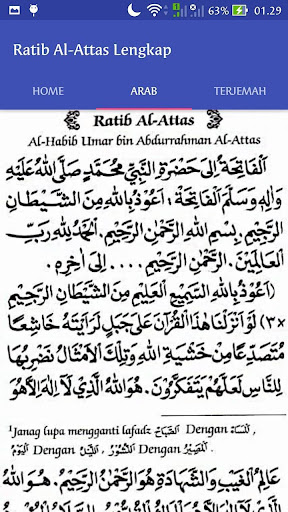 63% 01.29
Ratib Al-Attas Lengkap
HOME ARAB TERJEMAH
Ratib Al-Attas
Al-Habib Umar bin Abdurrahman Al-Attas
اَلْفَاتِحَةُ اِلَى حَضْرَةِ النَّبِيِّ مُحَمَّدٍ صَلَّى اللهُ عَلَيْهِ
وَاٰلِهِ وَسَلَّمَ الْفَاتِحَةْ، اَعُوْذُ بِاللهِ مِنَ الشَّيْطَانِ
الرَّجِيْمِ. بِسْمِ اللهِ الرَّحْمٰنِ الرَّحِيْمِ. اَلْحَمْدُ لِلهِ رَبِّ
الْعَالَمِيْنَ. الرَّحْمٰنِ الرَّحِيْمِ .... اِلَى اٰخِرِهِ.
(اَعُوْذُ بِاللهِ السَّمِيْعِ الْعَلِيْمِ مِنَ الشَّيْطَانِ الرَّجِيْمِ
×٣) لَوْ اَنْزَلْنَا هٰذَا الْقُرْاٰنَ عَلَى جَبَلٍ لَرَاَيْتَهُ خَاشِعًا
مُتَصَدِّعًا مِنْ خَشْيَةِ اللهِ وَتِلْكَ الْاَمْثَالُ نَضْرِبُهَا
لِلنَّاسِ لَعَلَّهُمْ يَتَفَكَّرُوْنَ. هُوَ اللهُ الَّذِيْ لَا اِلٰهَ اِلَّا هُوَ
¹Janag lupa mengganti lafadz اَلصَّبَاحُ Dengan اَلْمَسَاءُ,
اَلْيَوْمِ Dengan اَللَّيْلِ, اَلنُّشُوْرُ Dengan اَلْمَصِيْرُ.
عَالِمُ الْغَيْبِ وَالشَّهَادَةِ هُوَ الرَّحْمٰنُ الرَّحِيْمُ. هُوَ اللهُ
الَّذِيْ لَا اِلٰهَ اِلَّا هُوَ